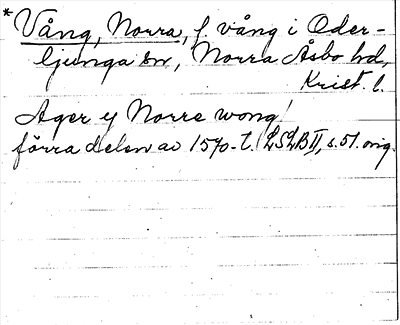 * Vång, Norra, f. vång i Oder-
ljunga sn, Norra Åsbo hd,
Krist. l.
Ager y Norre wong
förra delen av 1570-t. LSLB II, s. 51. orig.